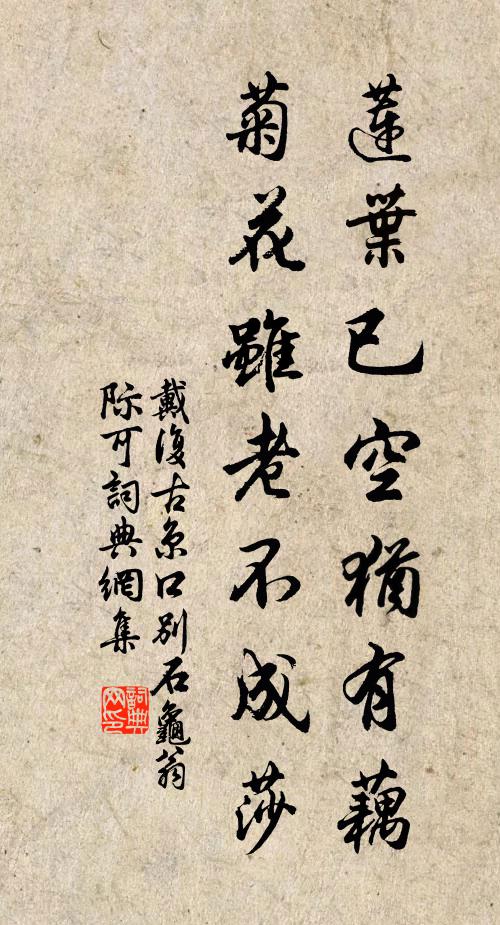 蓮葉已空猶有藕
菊花雖老不成莎
戴復古京口別石龜翁
際可詞典網集
詞典
网印